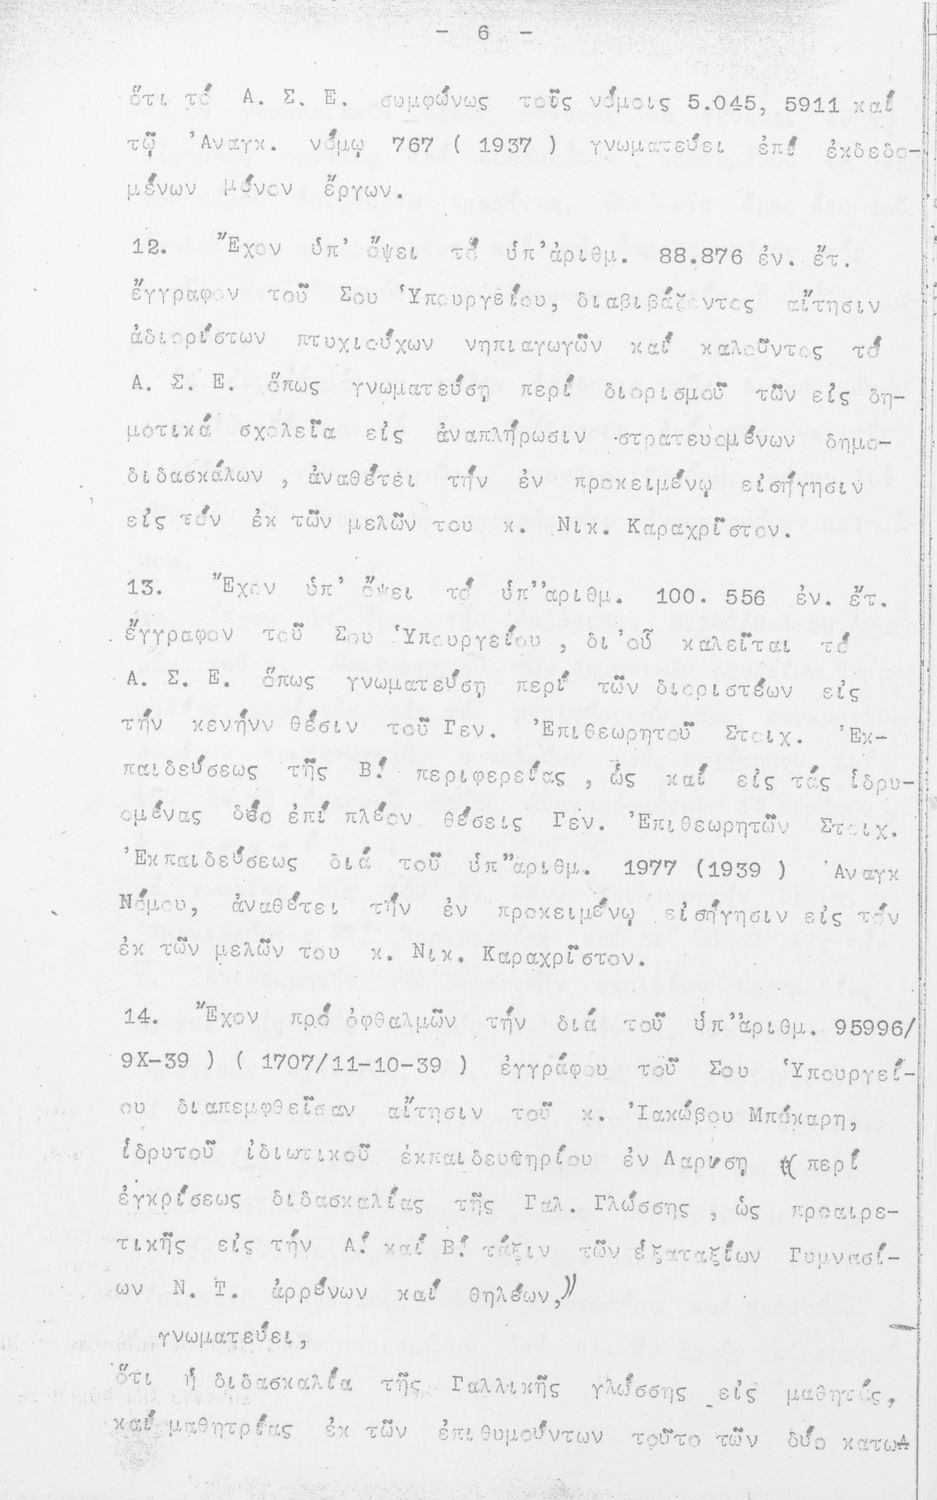 - 6 -
ὅτι τό Α. Σ. Ε. συμφώνως τοῖς νόμοις 5.045, 5911 καί
τῷ 'Αναγκ. νόμῳ 767 ( 1937 ) γνωματεύει ἐπί ἐκδεδο-
μένων μόνον ἔργων.
12. Ἔχον ὑπ' ὄψει τό ὑπ'ἀριθμ. 88.876 ἐν. ἔτ.
ἔγγραφον τοῦ Σου Ὑπουργείου, διαβιβάζοντος αἴτησιν
ἀδιορίστων πτυχιούχων νηπιαγωγῶν καί καλοῦντος τό
Α. Σ. Ε. ὅπως γνωματεύσῃ περί διορισμοῦ τῶν εἰς δη-
μοτικά σχολεῖα εἰς ἀναπλήρωσιν στρατευομένων δημο-
διδασκάλων , ἀναθέτει τήν ἐν προκειμένῳ εἰσήγησιν
εἰς τόν ἐκ τῶν μελῶν του κ. Νικ. Καραχρῖστον.
13. Ἔχον ὑπ' ὄψει τό ὑπ''αριθμ. 100. 556 ἐν. ἔτ.
ἔγγραφον τοῦ Σου Ὑπουργείου , δι'οὗ καλεῖται τό
Α. Σ. Ε. ὅπως γνωματεύσῃ περί τῶν διοριστέων εἰς
τήν κενήνν θέσιν τοῦ Γεν. Ἐπιθεωρητοῦ Στοιχ. Ἐκ-
παιδεύσεως τῆς Β! περιφερείας , ὡς καί εἰς τάς ἱδρυ-
ομένας δύο ἐπί πλέον θέσεις Γεν. Ἐπιθεωρητῶν Στοιχ.
Ἐκπαιδεύσεως διά τοῦ ὑπ"αριθμ. 1977 (1939 ) Ἀναγκ
Νόμου, ἀναθέτει τήν ἐν προκειμένῳ εἰσήγησιν εἰς τόν
ἐκ τῶν μελῶν του κ. Νικ. Καραχρῖστον.
14. Ἔχον πρό ὀφθαλμῶν τήν διά τοῦ ὑπ'ἀριθμ. 95996/
9Χ-39 ) ( 1707/11-10-39 ) ἐγγράφου τοῦ Σου Ὑπουργεί-
ου διαπεμφθεῖσαν αἴτησιν τοῦ κ. Ἰακώβου Μπόκαρη,
ἱδρυτοῦ ἰδιωτικοῦ ἐκπαιδευτηρίου ἐν Λαρίση (περί
ἐγκρίσεως διδασκαλίας τῆς Γαλ. Γλώσσης , ὡς προαιρε-
τικῆς εἰς τήν Α! καί Β! τάξιν τῶν ἑξαταξίων Γυμνασί-
ων Ν. Τ. ἀρρένων καί θηλέων,)
γνωματεύει,
ὅτι ἡ διδασκαλία τῆς Γαλλικῆς γλώσσης εἰς μαθητάς,
καί μαθητρίας ἐκ τῶν ἐπιθυμούντων τοῦτο τῶν δύο κατω